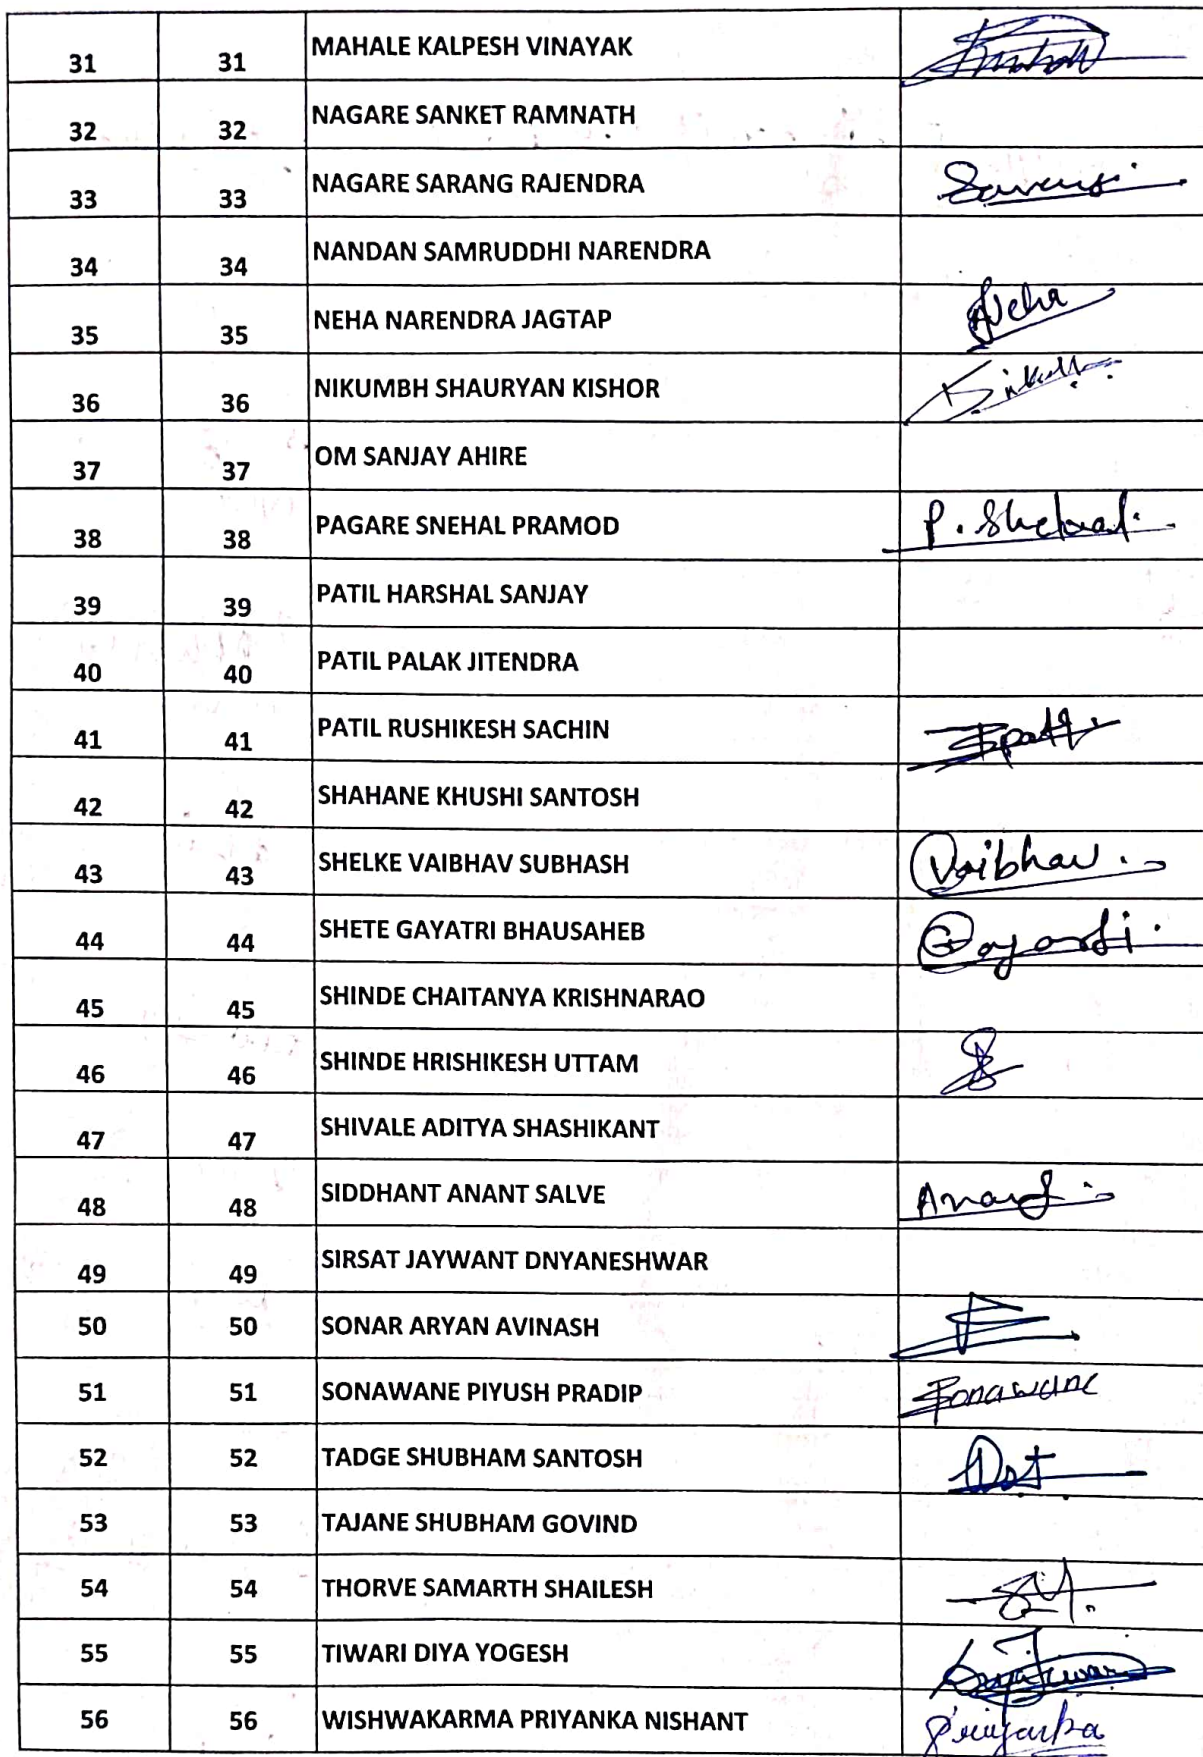 31 31 MAHALE KALPESH VINAYAK
32 32 NAGARE SANKET RAMNATH
33 33 NAGARE SARANG RAJENDRA Sarang
34 34 NANDAN SAMRUDDHI NARENDRA
35 35 NEHA NARENDRA JAGTAP Neha
36 36 NIKUMBH SHAURYAN KISHOR
37 37 OM SANJAY AHIRE
38 38 PAGARE SNEHAL PRAMOD P. Snehal
39 39 PATIL HARSHAL SANJAY
40 40 PATIL PALAK JITENDRA
41 41 PATIL RUSHIKESH SACHIN
42 42 SHAHANE KHUSHI SANTOSH
43 43 SHELKE VAIBHAV SUBHASH Vaibhav
44 44 SHETE GAYATRI BHAUSAHEB Gayatri
45 45 SHINDE CHAITANYA KRISHNARAO
46 46 SHINDE HRISHIKESH UTTAM
47 47 SHIVALE ADITYA SHASHIKANT
48 48 SIDDHANT ANANT SALVE Anant
49 49 SIRSAT JAYWANT DNYANESHWAR
50 50 SONAR ARYAN AVINASH
51 51 SONAWANE PIYUSH PRADIP Sonawane
52 52 TADGE SHUBHAM SANTOSH
53 53 TAJANE SHUBHAM GOVIND
54 54 THORVE SAMARTH SHAILESH
55 55 TIWARI DIYA YOGESH
56 56 WISHWAKARMA PRIYANKA NISHANT Priyanka